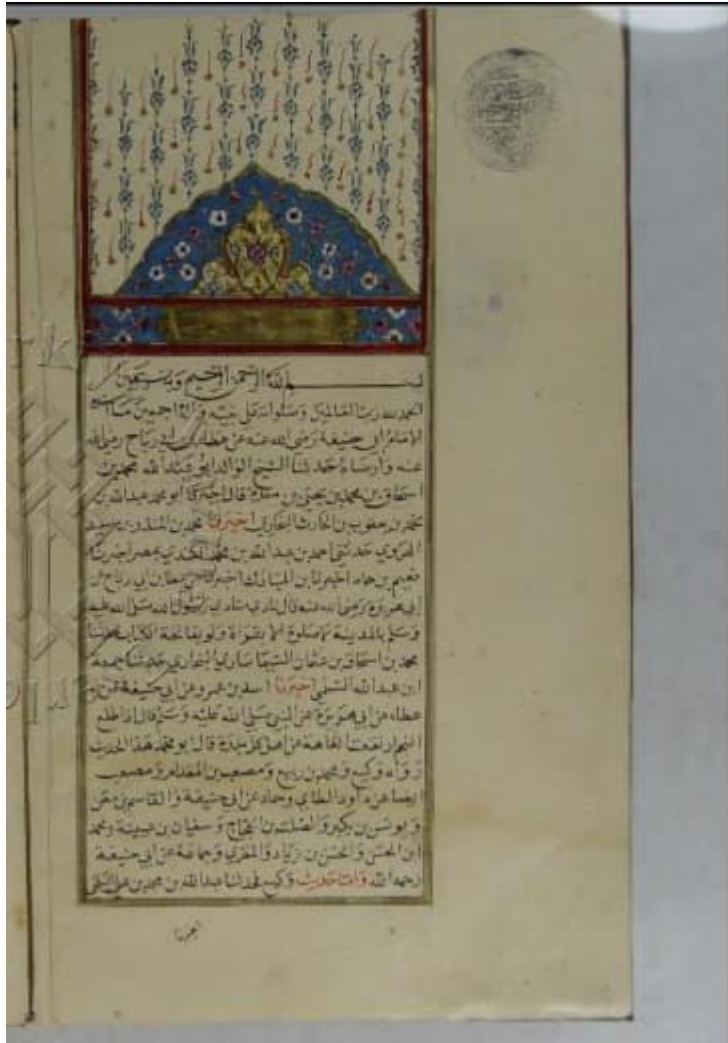 بسم الله الرحمن الرحيم وبه نستعين
الحمد لله رب العالمين وصلواته على نبيه وآله اجمعين ما اسند
الامام ابى حنيفة رضى الله عنه عن عطاء بن ابى رباح رضى الله
عنه وارساه حدثنا الشيخ الوالد ابو عبد الله محمد بن
اسحاق بن محمد بن يحيى بن مندة قال اخبرنا ابو محمد عبد الله بن
محمد بن يعقوب بن الحارث البخارى اخبرنا محمد بن المنذر بن سعيد
الهروي حدثنى احمد بن عبد الله بن محمد الكندي بمصر اخبرنا
نعيم بن حماد اخبرنا ابن المبارك اخبرنا عن عطا بن ابى رباح عن
ابى هريرة رضى الله عنه قال نادى منادي رسول الله صلى الله عليه
وسلم بالمدينة لا صلوة الا بقراة ولو بفاتحة الكتاب حدثنا
محمد بن اسحاق بن عثمان السمسار البخاري حدثنا جمعة
ابن عبد الله السلمى اخبرنا اسد بن عمرو عن ابى حنيفة عن
عطاء عن ابى هريرة عن النبي صلى الله عليه وسلم قال اذا طلع
النجم ارتفعت العاهة عن اهل كل بلدة قال ابو محمد هذا الحديث
رواه وكيع ومحمد بن ربيع ومصعب بن المقدام ومصعب
ايضا عن داود الطاي وحماد عن ابى حنيفة والقاسم بن معن
ويونس بن بكير والصلت بن الحجاج وسفيان بن عيينة ومحمد
ابن الحسن والحسن بن زياد والمقري وجماعة عن ابى حنيفة
رحمه الله واما حديث وكيع فحدثنا عبد الله بن محمد بن على البلخى
اخبرنا